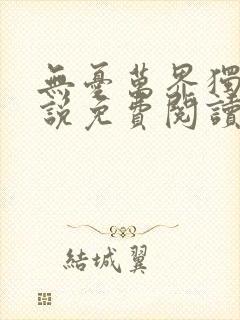 無憂萬界獨
說免費閱讀
結城翼